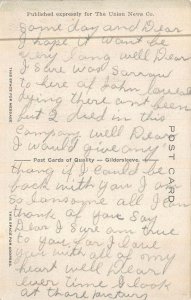 Published expressly for The Union News Co.
Some day and Dear
I hope it want be
very long well Dear
I Sure was Sorrow
to here of John loved
dying there ant been
but 2 died in this
Company well Dear
I would give any
POST CARD
Post Cards of Quality — Gildersleeve.
thang if I could be
back with you I am
So lonsome all I can
thank of you Say
Dear I Sure am true
to you for I love
you with all of my
heart well Dear
ever time I look
at those
THIS SPACE FOR MESSAGE